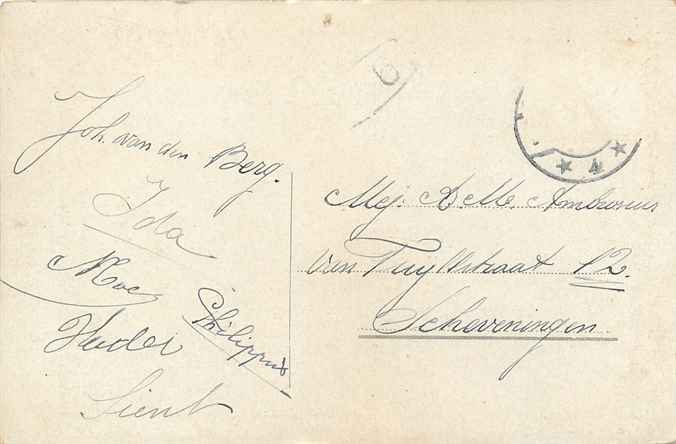 Joh. van den Berg.
Ida
Philippus
Sient
6
★ 4 ★
Mej. A. M. Ambrosius
van Tuyllstraat 12.
Scheveningen.